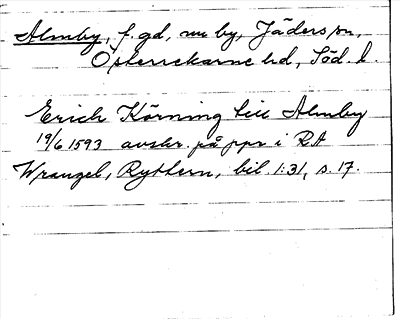 Almby, f. gd, nu by, Jäders sn,
Österrekarne hd, Söd. l.
Erich Körning till Almby
19/6 1593 avskr. på ppr i RA
Wrangel, Ryttern, bil. 1:31, s. 17.